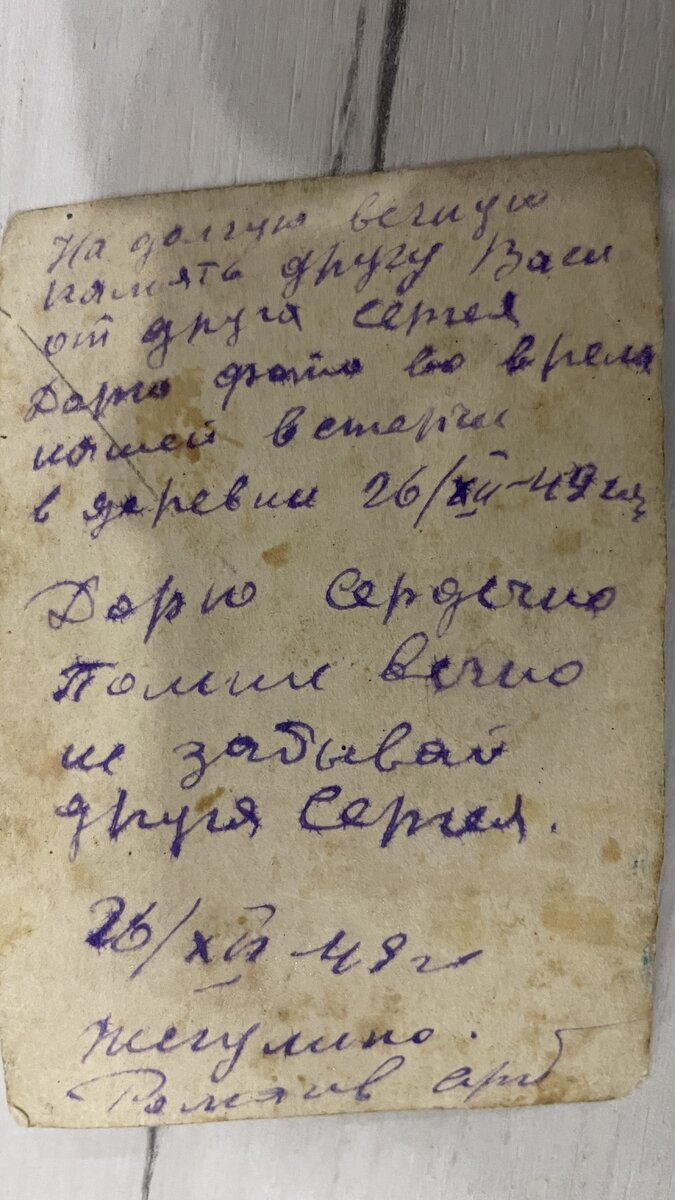 На долгую вечную
память другу Васи
от друга Сергея
Дарю фото во время
нашей встречи
в деревни 26/XII-49 год
Дарю сердечно
Помни вечно
не забывай
друга Сергея.
26/XII-49 г
Жегулино.